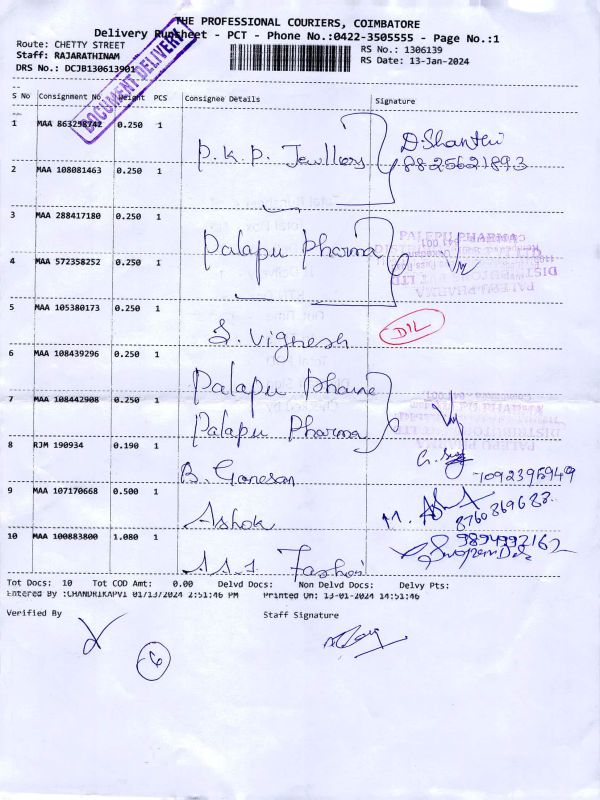 THE PROFESSIONAL COURIERS, COIMBATORE
Delivery Runsheet - PCT - Phone No.:0422-3505555 - Page No.:1
Route: CHETTY STREET
RS No.: 1306139
Staff: RAJARATHINAM
RS Date: 13-Jan-2024
DRS No.: DCJB130613901
DOCUMENT DELIVERY
S No Consignment No. Weight PCS Consignee Details Signature
1 MAA 863258742 0.250 1 P.K.P. Jewllery D. Shanthi
8825621893
2 MAA 108081463 0.250 1
3 MAA 288417180 0.250 1 Palapu Pharma
PALEPU PHARMA
4 MAA 572358252 0.250 1
5 MAA 105380173 0.250 1 S. Vignesh D/L
6 MAA 108439296 0.250 1 Palapu Pharma
7 MAA 108442908 0.250 1 Palapu Pharma
PALEPU PHARMA
8 RJM 190934 0.190 1 B. Ganesan
7092395949
9 MAA 107170668 0.500 1 Ashok
8760869682
10 MAA 100883800 1.080 1 Fashion
9894992162
Tot Docs: 10 Tot COD Amt: 0.00 Delvd Docs: Non Delvd Docs: Delvy Pts:
Entered By :CHANDRIKAPVI 01/13/2024 2:51:46 PM Printed On: 13-01-2024 14:51:46
Verified By Staff Signature
6